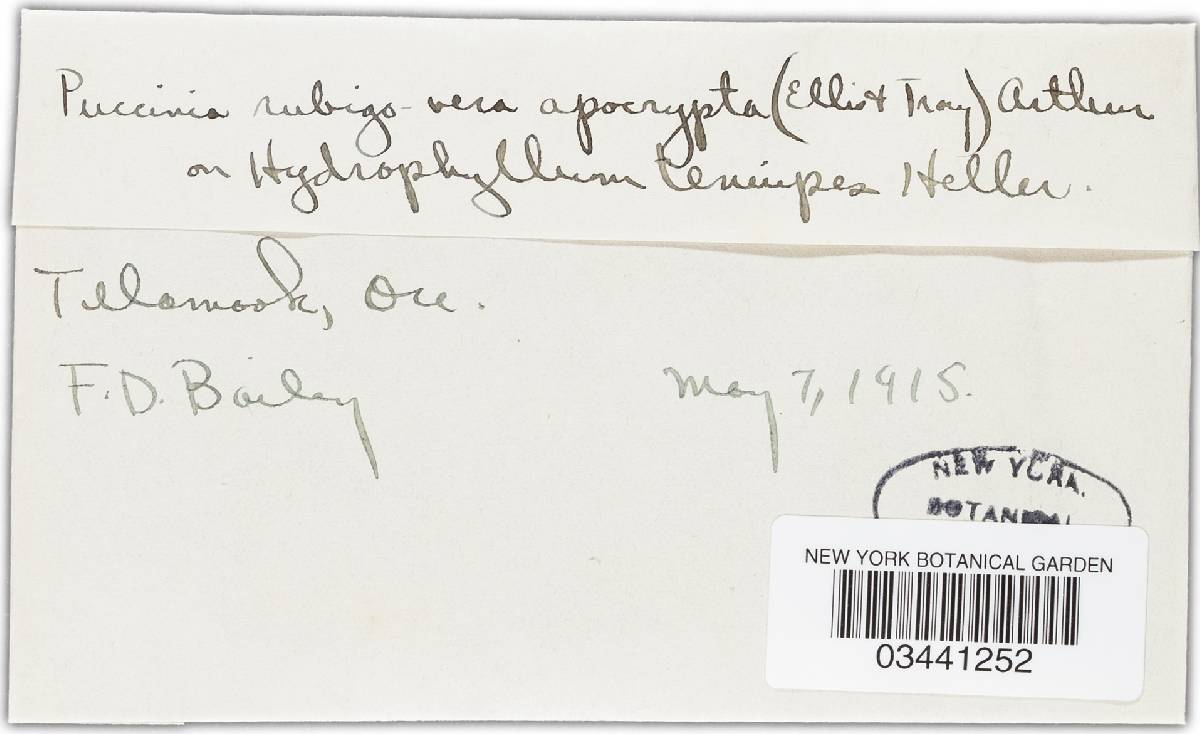 Puccinia rubigo-vera apocrypta (Ellis & Tracy) Arthur
on Hydrophyllum tenuipes Heller.
Tilamook, Ore.
F. D. Bailey May 7, 1915.
NEW YORK
BOTANICAL
NEW YORK BOTANICAL GARDEN
03441252